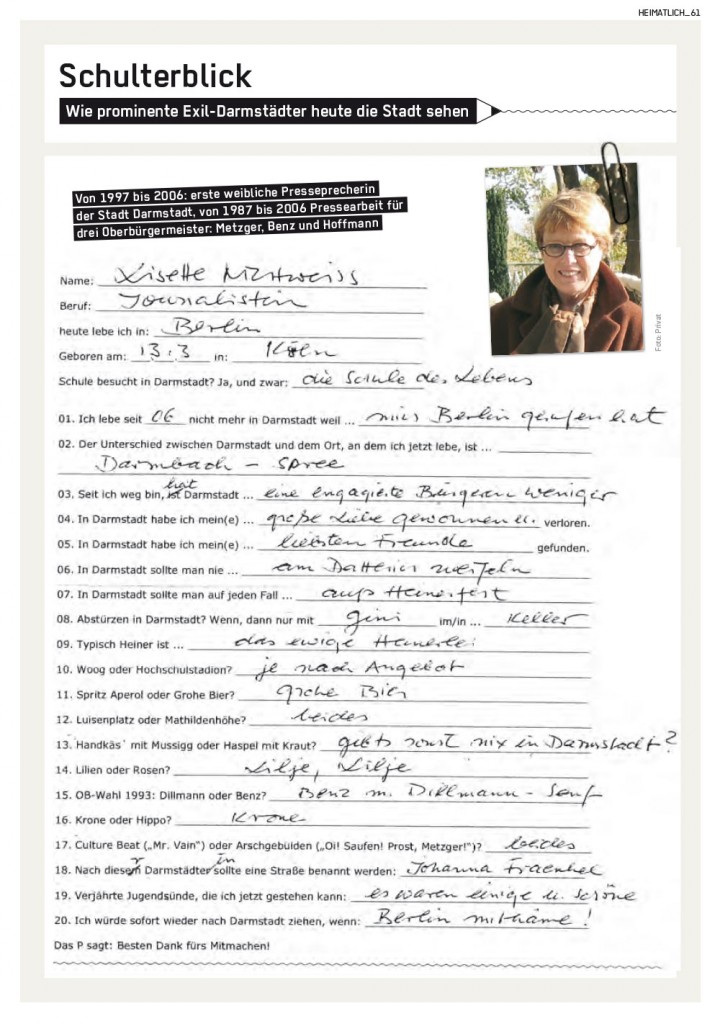 HEIMATLICH_61
Schulterblick
Wie prominente Exil-Darmstädter heute die Stadt sehen
Von 1997 bis 2006: erste weibliche Presseprecherin
der Stadt Darmstadt, von 1987 bis 2006 Pressearbeit für
drei Oberbürgermeister: Metzger, Benz und Hoffmann
Foto: Privat
Name: Lisette Nichtweiss
Beruf: Journalistin
heute lebe ich in: Berlin
Geboren am: 13.3 in: Köln
Schule besucht in Darmstadt? Ja, und zwar: die Schule des Lebens
01. Ich lebe seit 06 nicht mehr in Darmstadt weil ... mich Berlin gerufen hat
02. Der Unterschied zwischen Darmstadt und dem Ort, an dem ich jetzt lebe, ist ...
Darmbach - Spree
03. Seit ich weg bin, ist hat Darmstadt ... eine engagierte Bürgerin weniger
04. In Darmstadt habe ich mein(e) ... große Liebe gewonnen u. verloren.
05. In Darmstadt habe ich mein(e) ... liebsten Freunde gefunden.
06. In Darmstadt sollte man nie ... am Datterich zweifeln
07. In Darmstadt sollte man auf jeden Fall ... aufs Heinerfest
08. Abstürzen in Darmstadt? Wenn, dann nur mit Gini im/in ... Keller
09. Typisch Heiner ist ... das ewige Heinerlei
10. Woog oder Hochschulstadion? je nach Angebot
11. Spritz Aperol oder Grohe Bier? Grohe Bier
12. Luisenplatz oder Mathildenhöhe? beides
13. Handkäs` mit Mussigg oder Haspel mit Kraut? gibts sonst nix in Darmstadt?
14. Lilien oder Rosen? Lilje, Lilje
15. OB-Wahl 1993: Dillmann oder Benz? Benz m. Dillmann-Senf
16. Krone oder Hippo? Krone
17. Culture Beat („Mr. Vain") oder Arschgebüiden („Oi! Saufen! Prost, Metzger!")? beides
18. Nach dieser Darmstädterin sollte eine Straße benannt werden: Johanna Fraenkel
19. Verjährte Jugendsünde, die ich jetzt gestehen kann: es waren einige u. schöne
20. Ich würde sofort wieder nach Darmstadt ziehen, wenn: Berlin mitkäme!
Das P sagt: Besten Dank fürs Mitmachen!